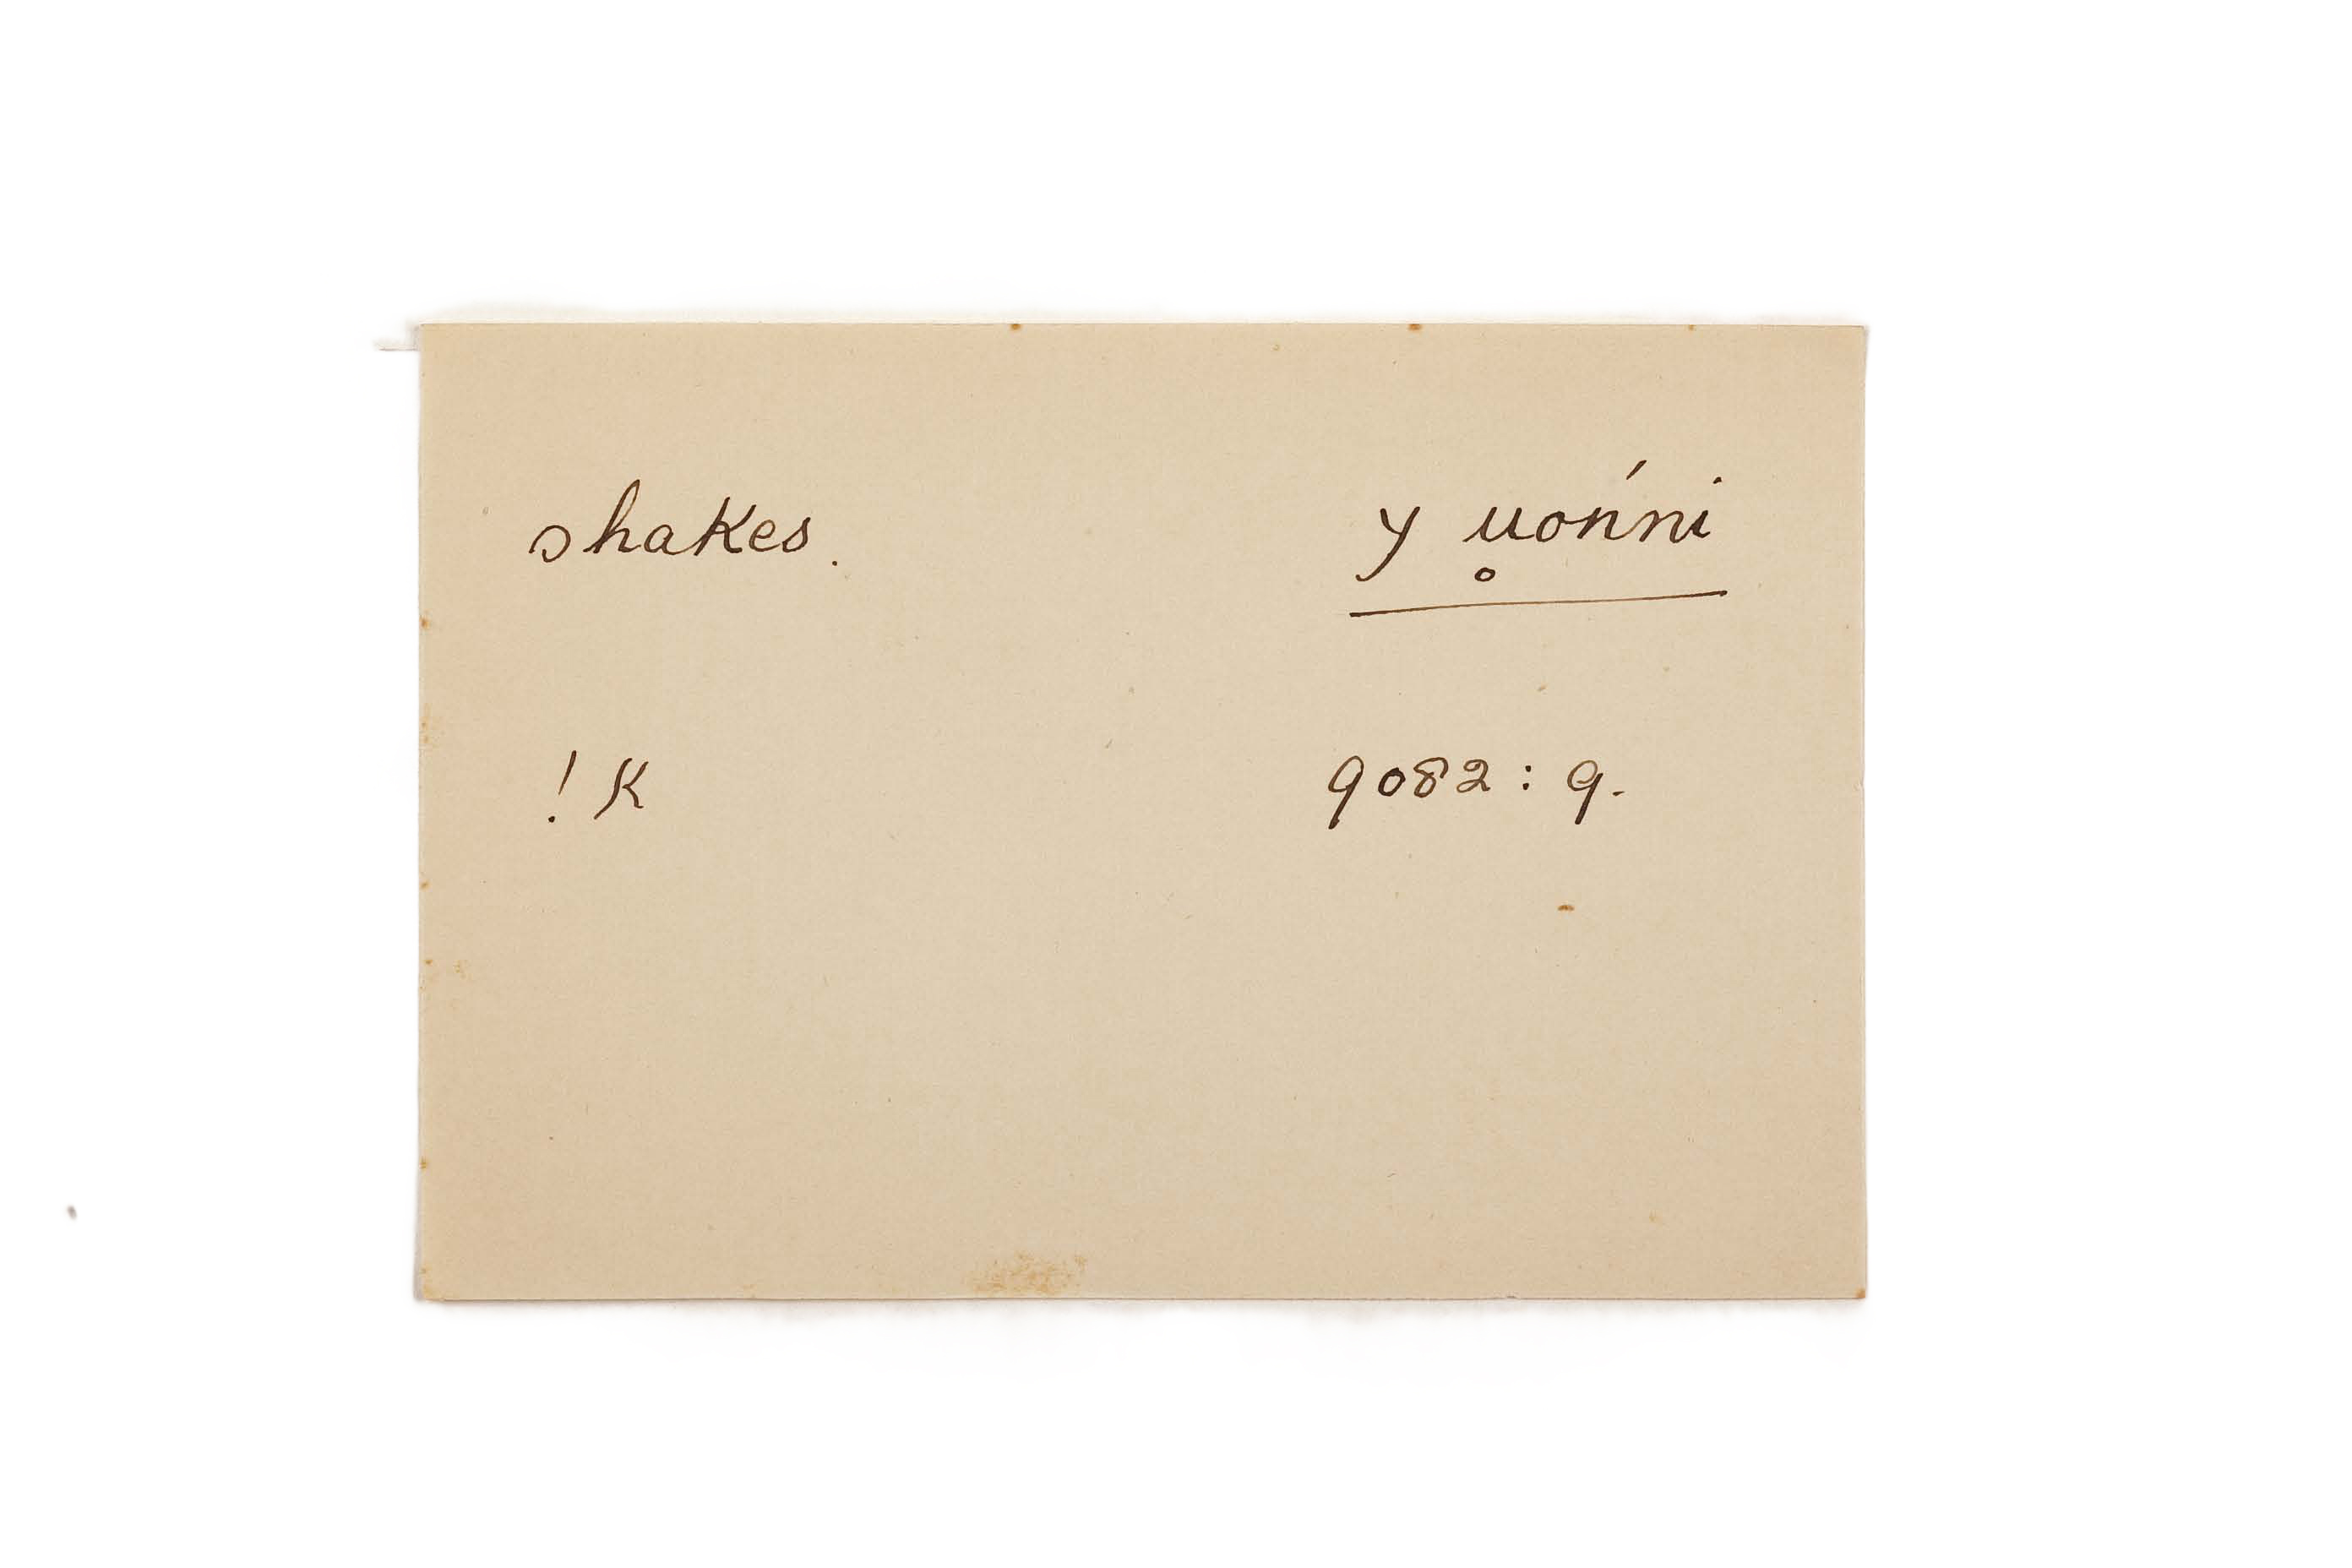 shakes. y u̥ońni
! K 9082 : 9.